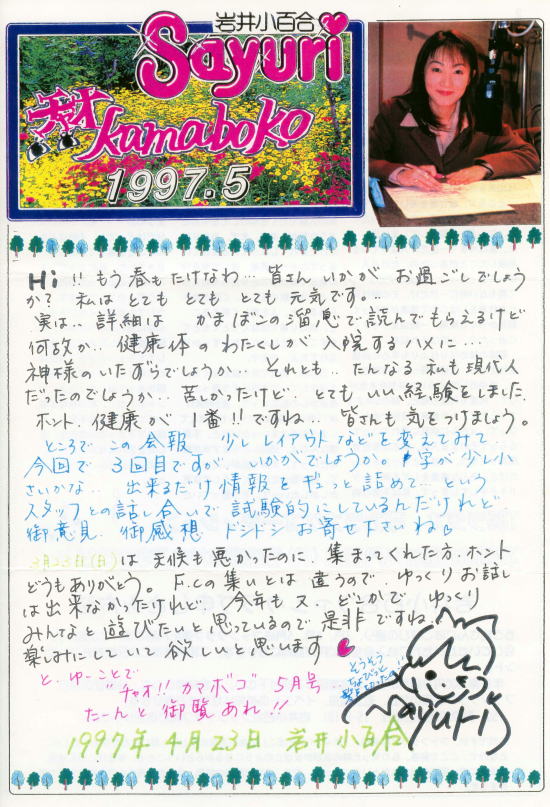 岩井小百合
Sayuri
チャオ
kamaboko
1997.5
Hi!! もう春もたけなわ… 皆さんいかが お過ごしでしょう
か? 私は とても とても とても 元気です。..
実は.. 詳細は かまぼこの溜息で読んでもらえるけど
何故か.. 健康体のわたくしが入院するハメに…
神様のいたずらでしょうか.. それとも.. たんなる 私も現代人
だったのでしょうか.. 苦しかったけど. とてもいい経験をしました.
ホント. 健康が 1番!! ですね.. 皆さんも気をつけましょう。
ところで この会報 少しレイアウトなどを変えてみて..
今回で 3回目ですが. いかがでしょうか。 字が少し小
さいかな.. 出来るだけ情報をギュっと詰めて.. という
スタッフとの話し合いで試験的にしているんだけれど..
御意見. 御感想 ドシドシ お寄せ下さいね
3月23日(日)は 天候も悪かったのに. 集まってくれた方. ホント
どうもありがとう。 F.Cの集いとは 違うので. ゆっくりお話し
は出来なかったけれど. 今年も又. どこかで ゆっくり
みんなと遊びたいと思っているので 是非ですね..
楽しみにしていて欲しいと思います
と. ゆーことで
"チャオ!! カマボコ" 5月号..
たーんと 御覧あれ!!
そうそう
ちょびっと
髪を切ったの!!
Sayuri
1997年 4月23日 岩井小百合